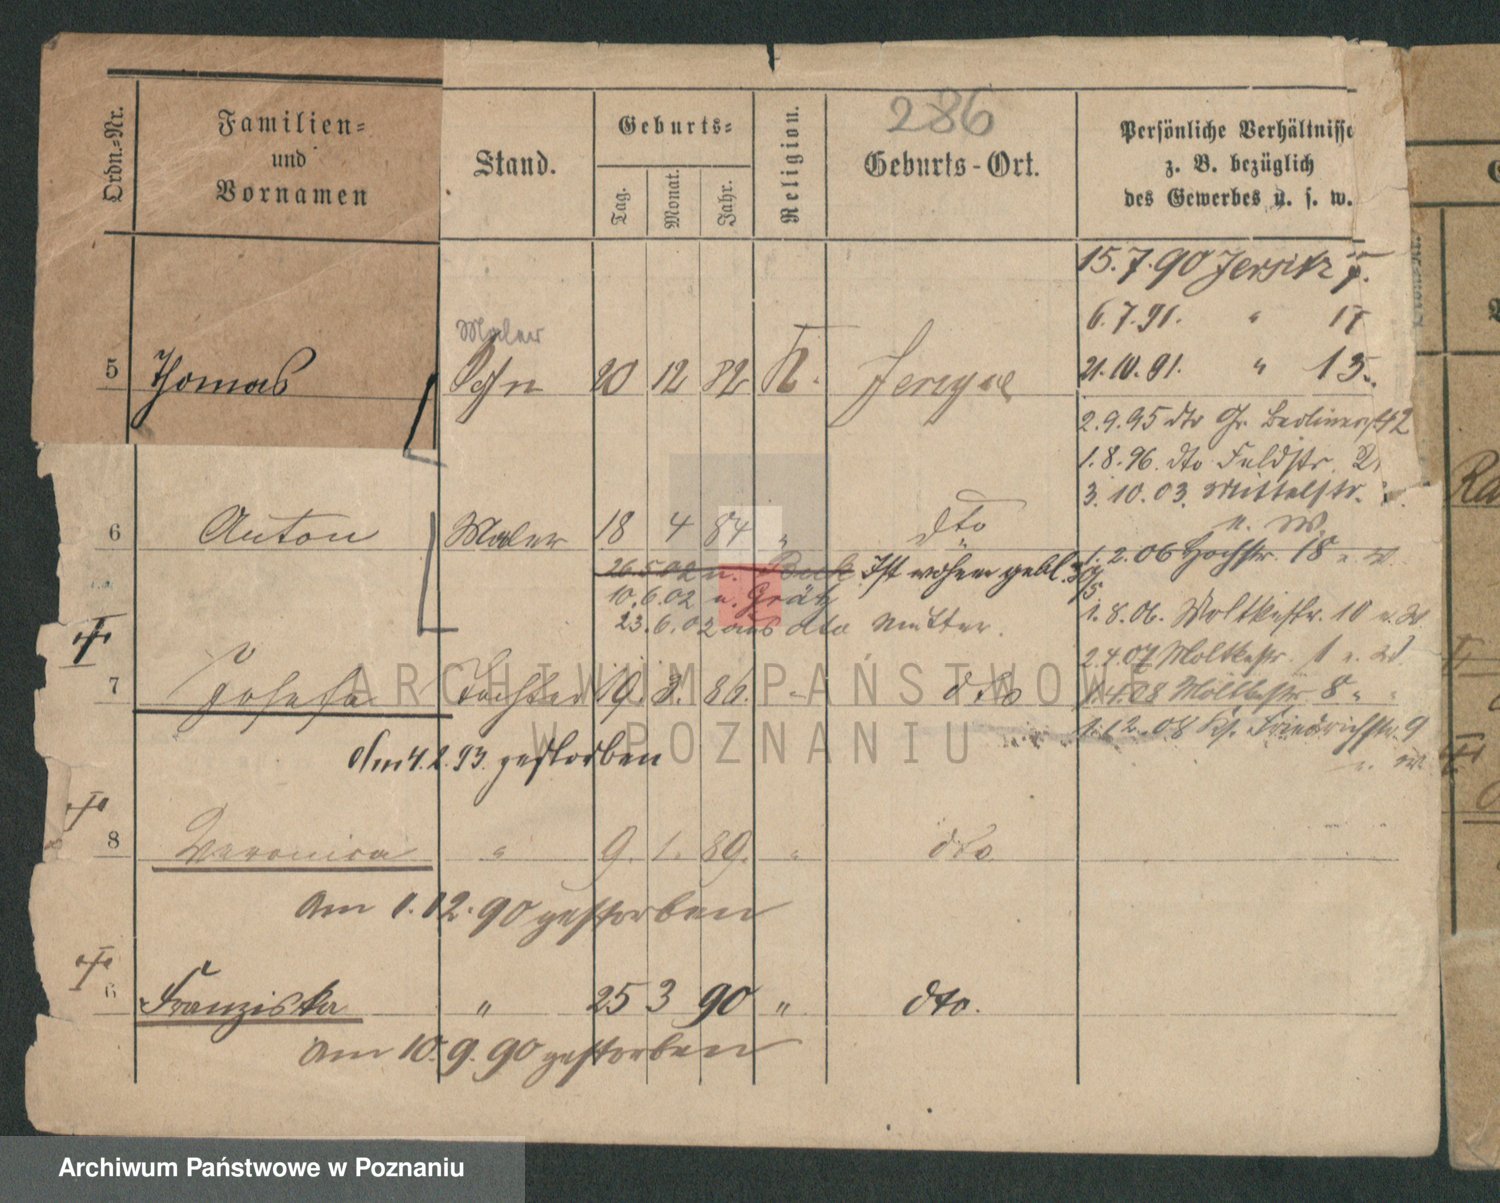 286
Ordn.-Nr.
Familien-
und
Vornamen
Stand.
Geburts-
Tag.
Monat.
Jahr.
Religion.
Geburts-Ort.
Persönliche Verhältnisse
z. B. bezüglich
des Gewerbes u. s. w.
15.7.90 Jersitz
6.7.91. " 17
21.10.91. " 13.
Maler
5 Thomas Sohn 20 12 82 K.
2.9.95 dto Gr. Berlinerst 42
1.8.96. dto Feldstr.
3.10.03. Mittelstr.
u. W.
6 Anton Maler 18 4 84 " dto
1.2.06 Hochstr. 18 u. W.
26.5.02 n. Ist wohnen gebl. 30/5
10.6.02 n. Grätz
23.6.02 aus dto Mutter.
1.8.06. Moltkestr. 10 u. W
2.4.07 Moltkestr. 1 u. W.
7 Josefa Tochter 19. 3. 86. " dto
1.4.08 Moltkestr. 8 " "
1.12.08 Friedrichstr. 9
u. W.
Am 4.2.93. gestorben
8 Veronica " 9. 1. 89. " dto
Am 1.12.90 gestorben
6 Franziska " 25 3 90 " dto.
Am 10.9.90 gestorben
ARCHIWUM PAŃSTWOWE
W POZNANIU
Archiwum Państwowe w Poznaniu